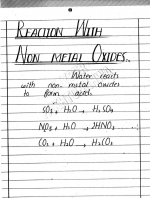 REACTION WITH
NON METAL OXIDES.
Water reacts
with non-metal oxides
to form acid.
SO3 + H2O → H2SO4
N2O5 + H2O → 2HNO3
CO2 + H2O → H2CO3